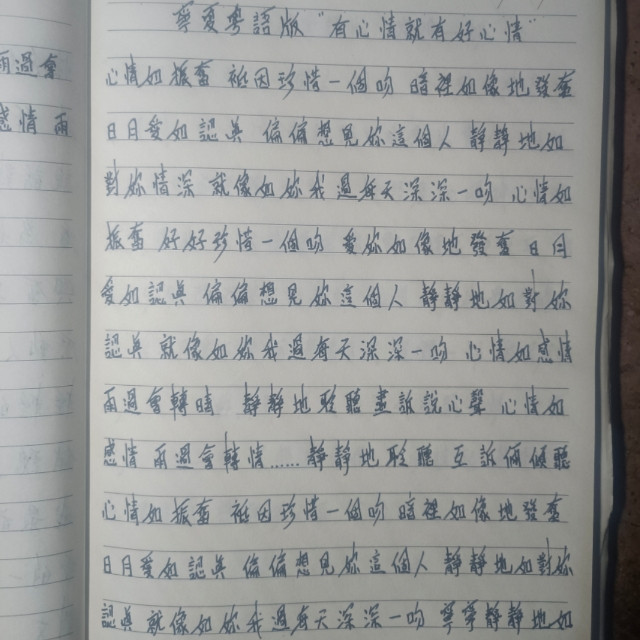 雨過會
感情雨
寧夏粵語版 "有心情就有好心情"
心情如振奮 祗因珍惜一個吻 暗裡如像地發奮
日月愛如認真 偏偏想見你這個人 靜靜地如
對你情深 就像如你我過每天深深一吻 心情如
振奮 好好珍惜一個吻 愛你如像地發奮 日月
愛如認真 偏偏想見你這個人 靜靜地如對你
認真 就像如你我過每天深深一吻 心情如感情
雨過會轉晴 靜靜地聆聽盡訴說心聲 心情如
感情雨過會轉情……靜靜地聆聽 互訴倆傾聽
心情如振奮 祗因珍惜一個吻 暗裡如像地發奮
日月愛如認真 偏偏想見你這個人 靜靜地如對你
認真 就像如你我過每天深深一吻 寧寧靜靜地如